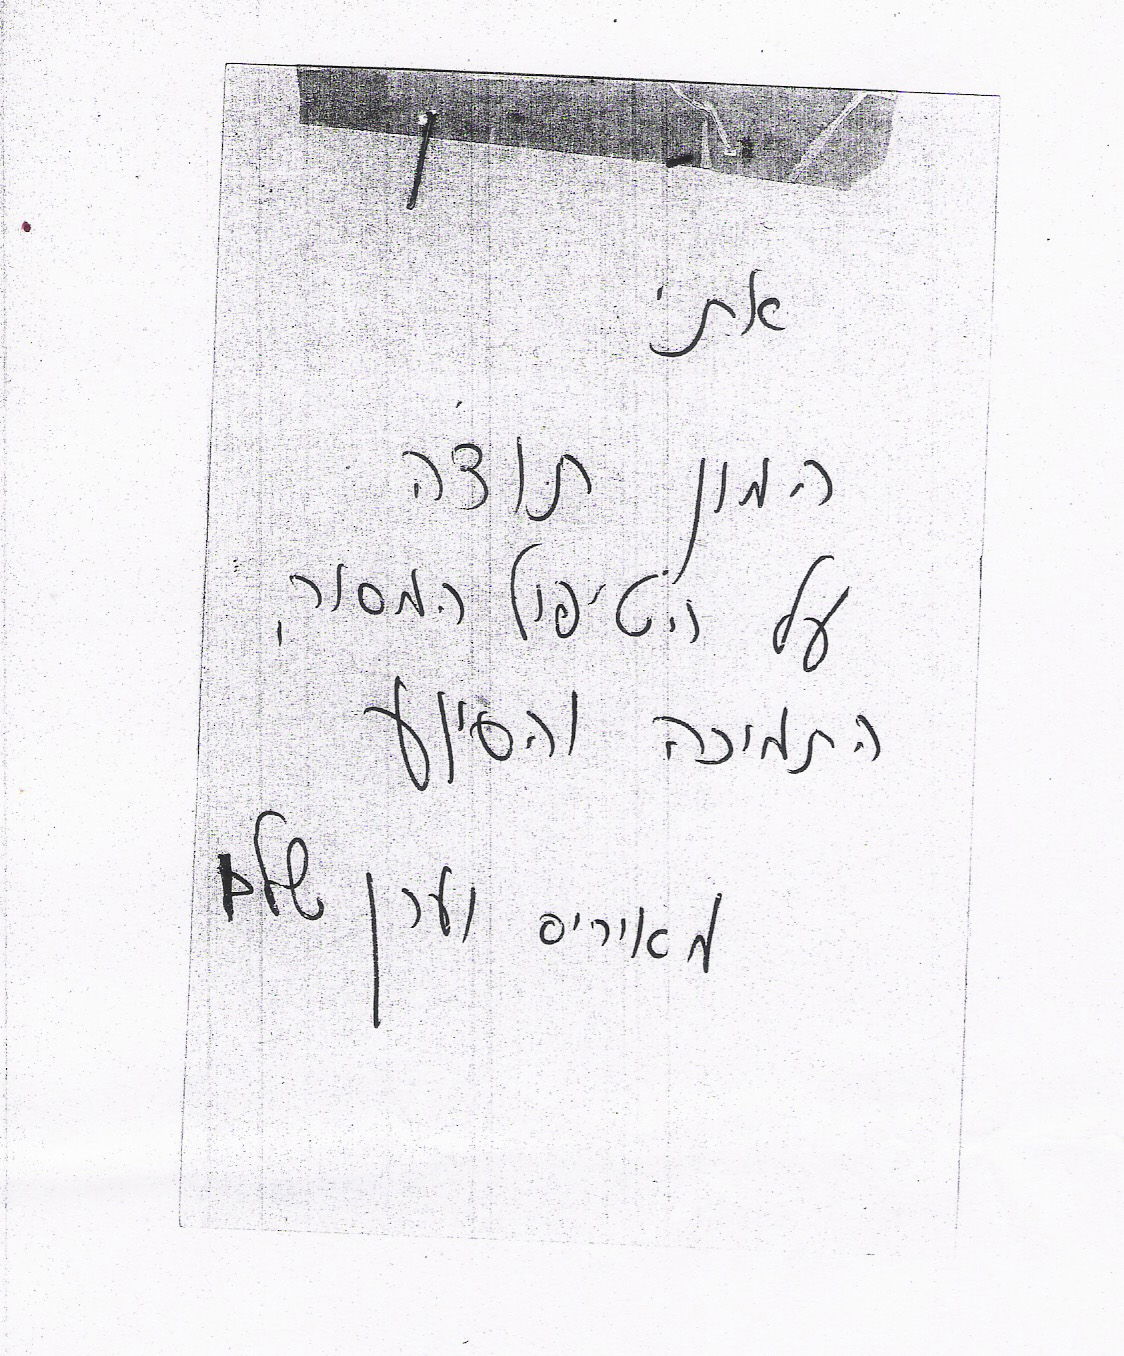 אתי
המון תודה
על הטיפול המסור,
התמיכה והסיוע
מאירים וערן שלם